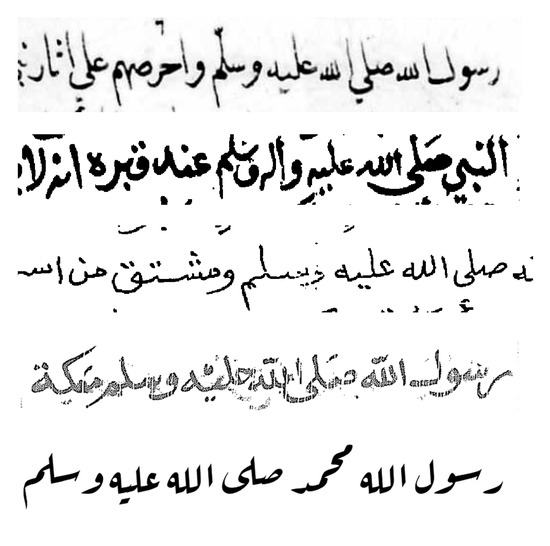 رسول الله صلى الله عليه وسلم واحرصهم على اثار
النبي صلى الله عليه واله وسلم عند قبره انه لا
صلى الله عليه وسلم ومشتق من اسـ
رسول الله صلى الله عليه وسلم مكة
رسول الله محمد صلى الله عليه وسلم